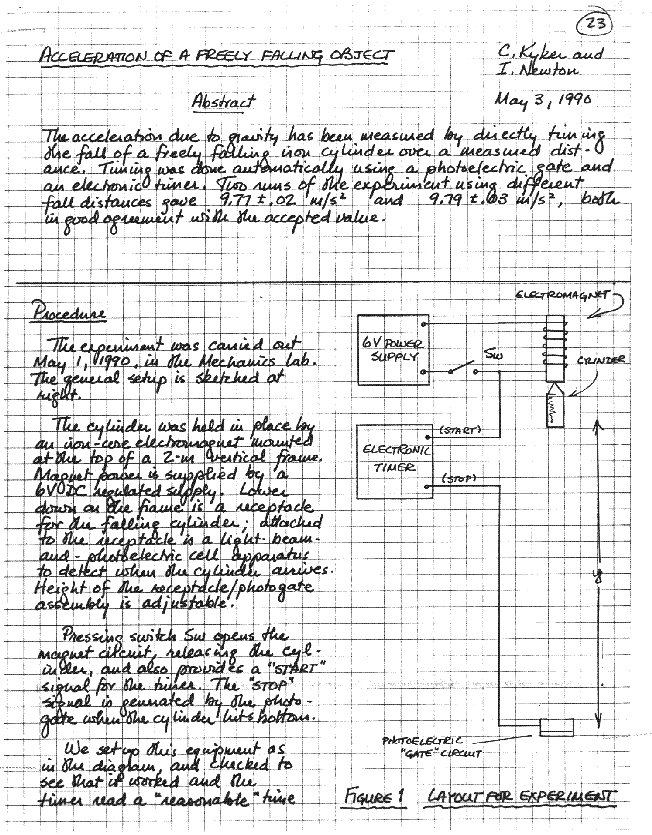 23
ACCELERATION OF A FREELY FALLING OBJECT
C. Kyker and
I. Newton
May 3, 1990
Abstract
The acceleration due to gravity has been measured by directly timing
the fall of a freely falling iron cylinder over a measured dist-
ance. Timing was done automatically using a photoelectric gate and
an electronic timer. Two runs of the experiment using different
fall distances gave 9.77 ± .02 m/s² and 9.79 ± .03 m/s², both
in good agreement with the accepted value.
Procedure
The experiment was carried out
May 1, 1990, in the Mechanics Lab.
The general setup is sketched at
right.
The cylinder was held in place by
an iron-core electromagnet mounted
at the top of a 2-m vertical frame.
Magnet power is supplied by a
6V DC regulated supply. Lower
down on the frame is a receptacle
for the falling cylinder; attached
to the receptacle is a light-beam-
and-photoelectric cell apparatus
to detect when the cylinder arrives.
Height of the receptacle/photogate
assembly is adjustable.
Pressing switch Sw opens the
magnet circuit, releasing the cyl-
inder, and also provides a "START"
signal for the timer. The "STOP"
signal is generated by the photo-
gate when the cylinder hits bottom.
We set up this equipment as
in the diagram, and checked to
see that it worked and the
timer read a "reasonable" time
ELECTROMAGNET
6V POWER
SUPPLY
Sw
CYLINDER
ELECTRONIC
TIMER
(START)
(STOP)
PHOTOELECTRIC
"GATE" CIRCUIT
FIGURE 1 LAYOUT FOR EXPERIMENT